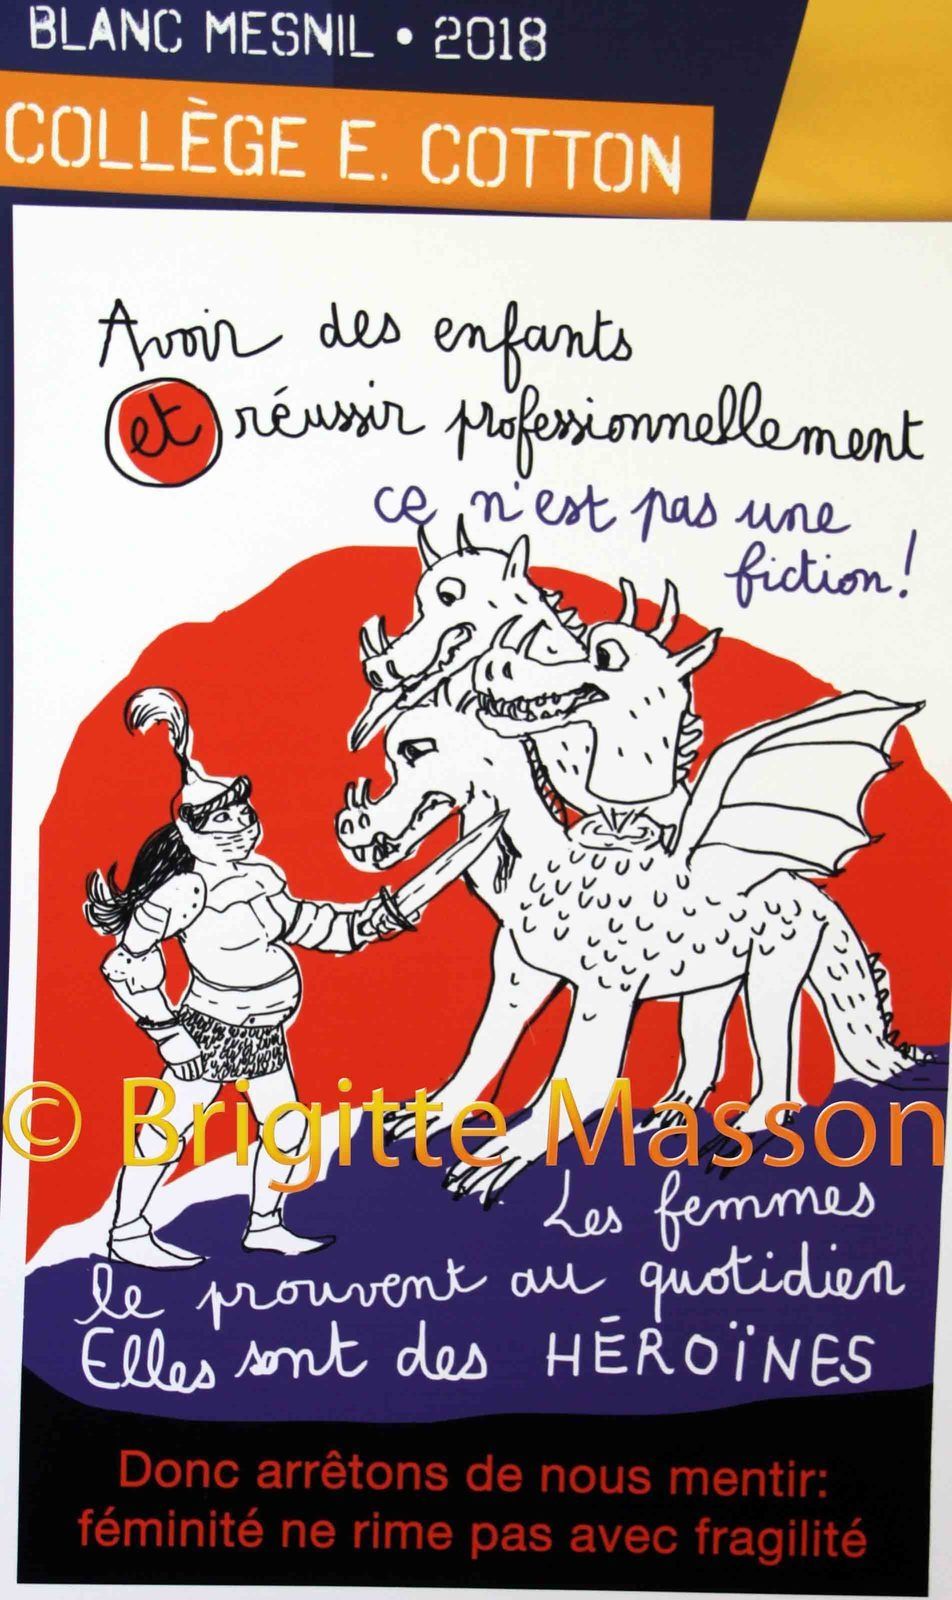 BLANC MESNIL • 2018
COLLÈGE E. COTTON
Avoir des enfants
et réussir professionnellement
ce n'est pas une
fiction!
© Brigitte Masson
Les femmes
le prouvent au quotidien
Elles sont des HÉROÏNES
Donc arrêtons de nous mentir:
féminité ne rime pas avec fragilité